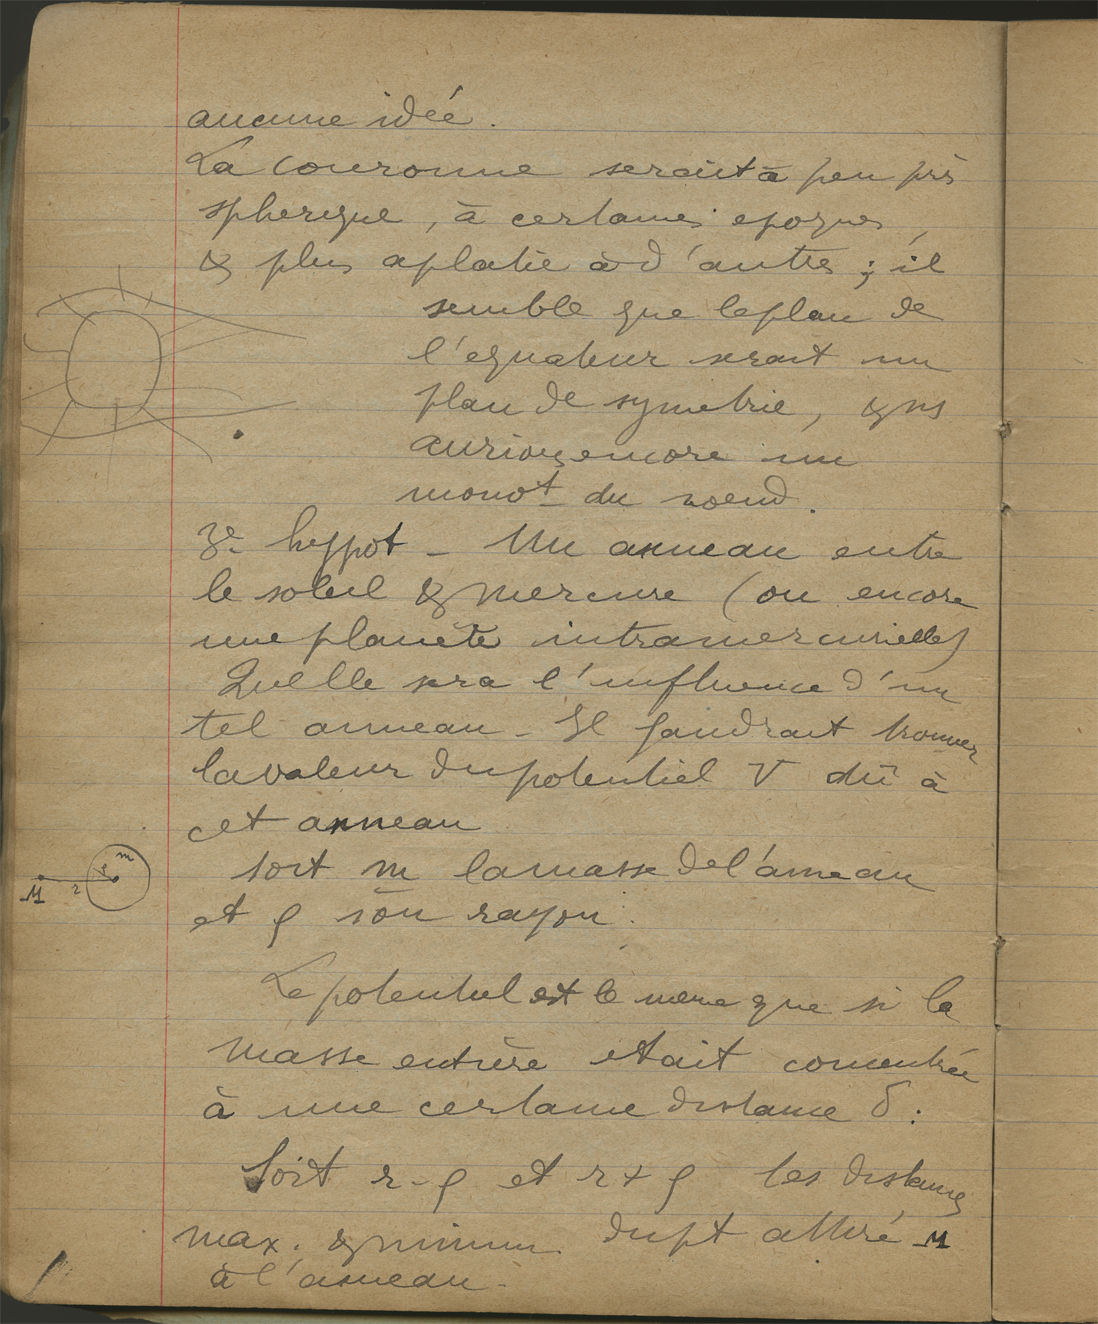 aucune idée.
La couronne serait à peu près
spherique, à certaines epoques,
& plus aplatie à d'autres ; il
semble que le plan de
l'equateur serait un
plan de symetrie, & ns
aurions encore un
mouvt du noeud.
3e hyppot - Un anneau entre
le soleil & mercure (ou encore
une planète intramercurielle)
Quelle sera l'influence d'un
tel anneau - Il faudrait trouver
la valeur du potentiel V dû à
cet anneau
soit m la masse de l'anneau
et ρ son rayon.
m
ρ
M
r
Le potentiel est le meme que si la
masse entière etait concentrée
à une certaine distance δ.
Soit r-ρ et r+ρ les distances
max. & minim. du pt attiré M
à l'anneau.